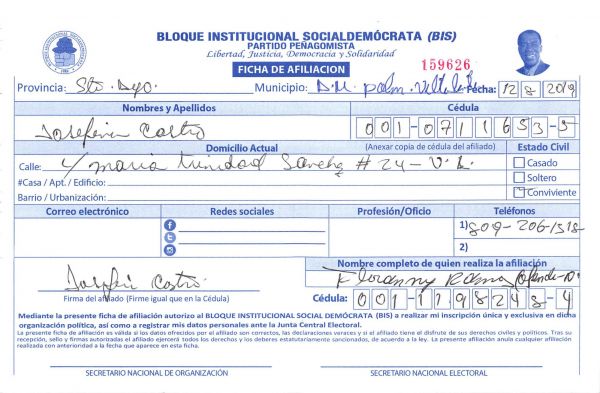 BLOQUE INSTITUCIONAL SOCIALDEMÓCRATA (BIS)
PARTIDO PEÑAGOMISTA
Libertad, Justicia, Democracia y Solidaridad
159626
FICHA DE AFILIACION
Provincia: Sto. Dgo. Municipio: D.N. Fecha: 12 8 2019
Nombres y Apellidos Cédula
Josefina Castro 001-0711653-5
Domicilio Actual (Anexar copia de cédula del afiliado) Estado Civil
Calle: C/ maria trinidad Sanchez # 24 - V.L. Casado
#Casa / Apt. / Edificio: Soltero
Barrio / Urbanización: Conviviente
Correo electrónico Redes sociales Profesión/Oficio Teléfonos
1) 809-206-1318
2)
Nombre completo de quien realiza la afiliación
Castro
Firma del afiliado (Firme igual que en la Cédula) Cédula: 001-1198248-4
Mediante la presente ficha de afiliación autorizo al BLOQUE INSTITUCIONAL SOCIAL DEMÓCRATA (BIS) a realizar mi inscripción única y exclusiva en dicha
organización política, así como a registrar mis datos personales ante la Junta Central Electoral.
La presente ficha de afiliación es válida si los datos ofrecidos por el afiliado son correctos, las declaraciones veraces y si el afiliado tiene el disfrute de sus derechos civiles y políticos. Tras su
recepción, sello y firmas autorizadas el afiliado ejercerá todos los derechos y los deberes estatutariamente sancionados, de acuerdo a la ley. La presente afiliación anula cualquier afiliación
realizada con anterioridad a la fecha que aparece en esta ficha.
SECRETARIO NACIONAL DE ORGANIZACIÓN SECRETARIO NACIONAL ELECTORAL